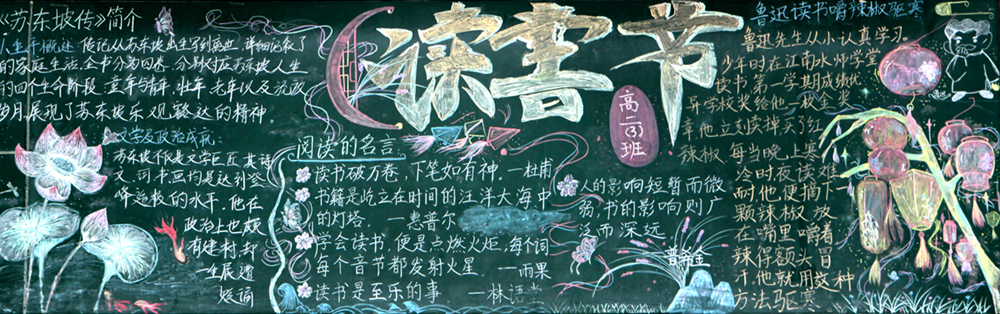 《苏东坡传》简介
人生平概述:传记从苏东坡出生写到离世,详细记录了
的家庭生活,全书分为四卷,分别对应苏东坡人生
的四个生命阶段,童年与青年、壮年、老年以及流放
岁月,展现了苏东坡乐观豁达的精神
文学及政治成就:
苏东坡不仅是文学巨匠,其诗
文、词书画均是达到登
峰造极的水平,他在
政治上也颇
有建树,却
一生屡遭
贬谪
读书节
高二(3)班
阅读的名言
读书破万卷,下笔如有神.—杜甫
书籍是屹立在时间的汪洋大海中
的灯塔.—惠普尔
学会读书,便是点燃火炬,每个词
每个音节都发射火星.—雨果
读书是至乐的事—林语堂
人的影响短暂而微
弱,书的影响则广
泛而深远.
普希金
鲁迅读书嚼辣椒驱寒
鲁迅先生从小认真学习.
少年时在江南水师学堂
读书,第一学期成绩优
异,学校奖给他一枚金奖
章,他立刻读掉买了红
辣椒.每当晚上寒
冷时夜读难
耐他便摘下一
颗辣椒,放
在嘴里嚼着
辣得额头冒
汗他就用这种
方法驱寒